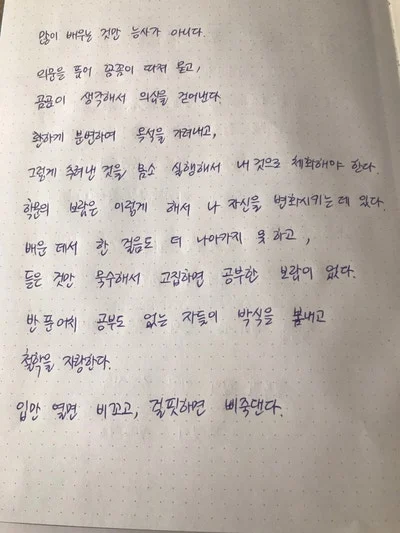 많이 배우는 것만 능사가 아니다.
의문을 품어 꼼꼼이 따져 묻고,
곰곰이 생각해서 의심을 걷어낸다.
환하게 분변하여 옥석을 가려내고,
그렇게 추려낸 것을 몸소 실행해서 내것으로 체화해야 한다.
학문의 보람은 이렇게 해서 나 자신을 변화시키는 데 있다.
배운 데서 한 걸음도 더 나아가지 못 하고,
들은 것만 묵수해서 고집하면 공부한 보람이 없다.
반 푼어치 공부도 없는 자들이 박식을 뽐내고
철학을 자랑한다.
입만 열면 비꼬고, 걸핏하면 삐죽댄다.